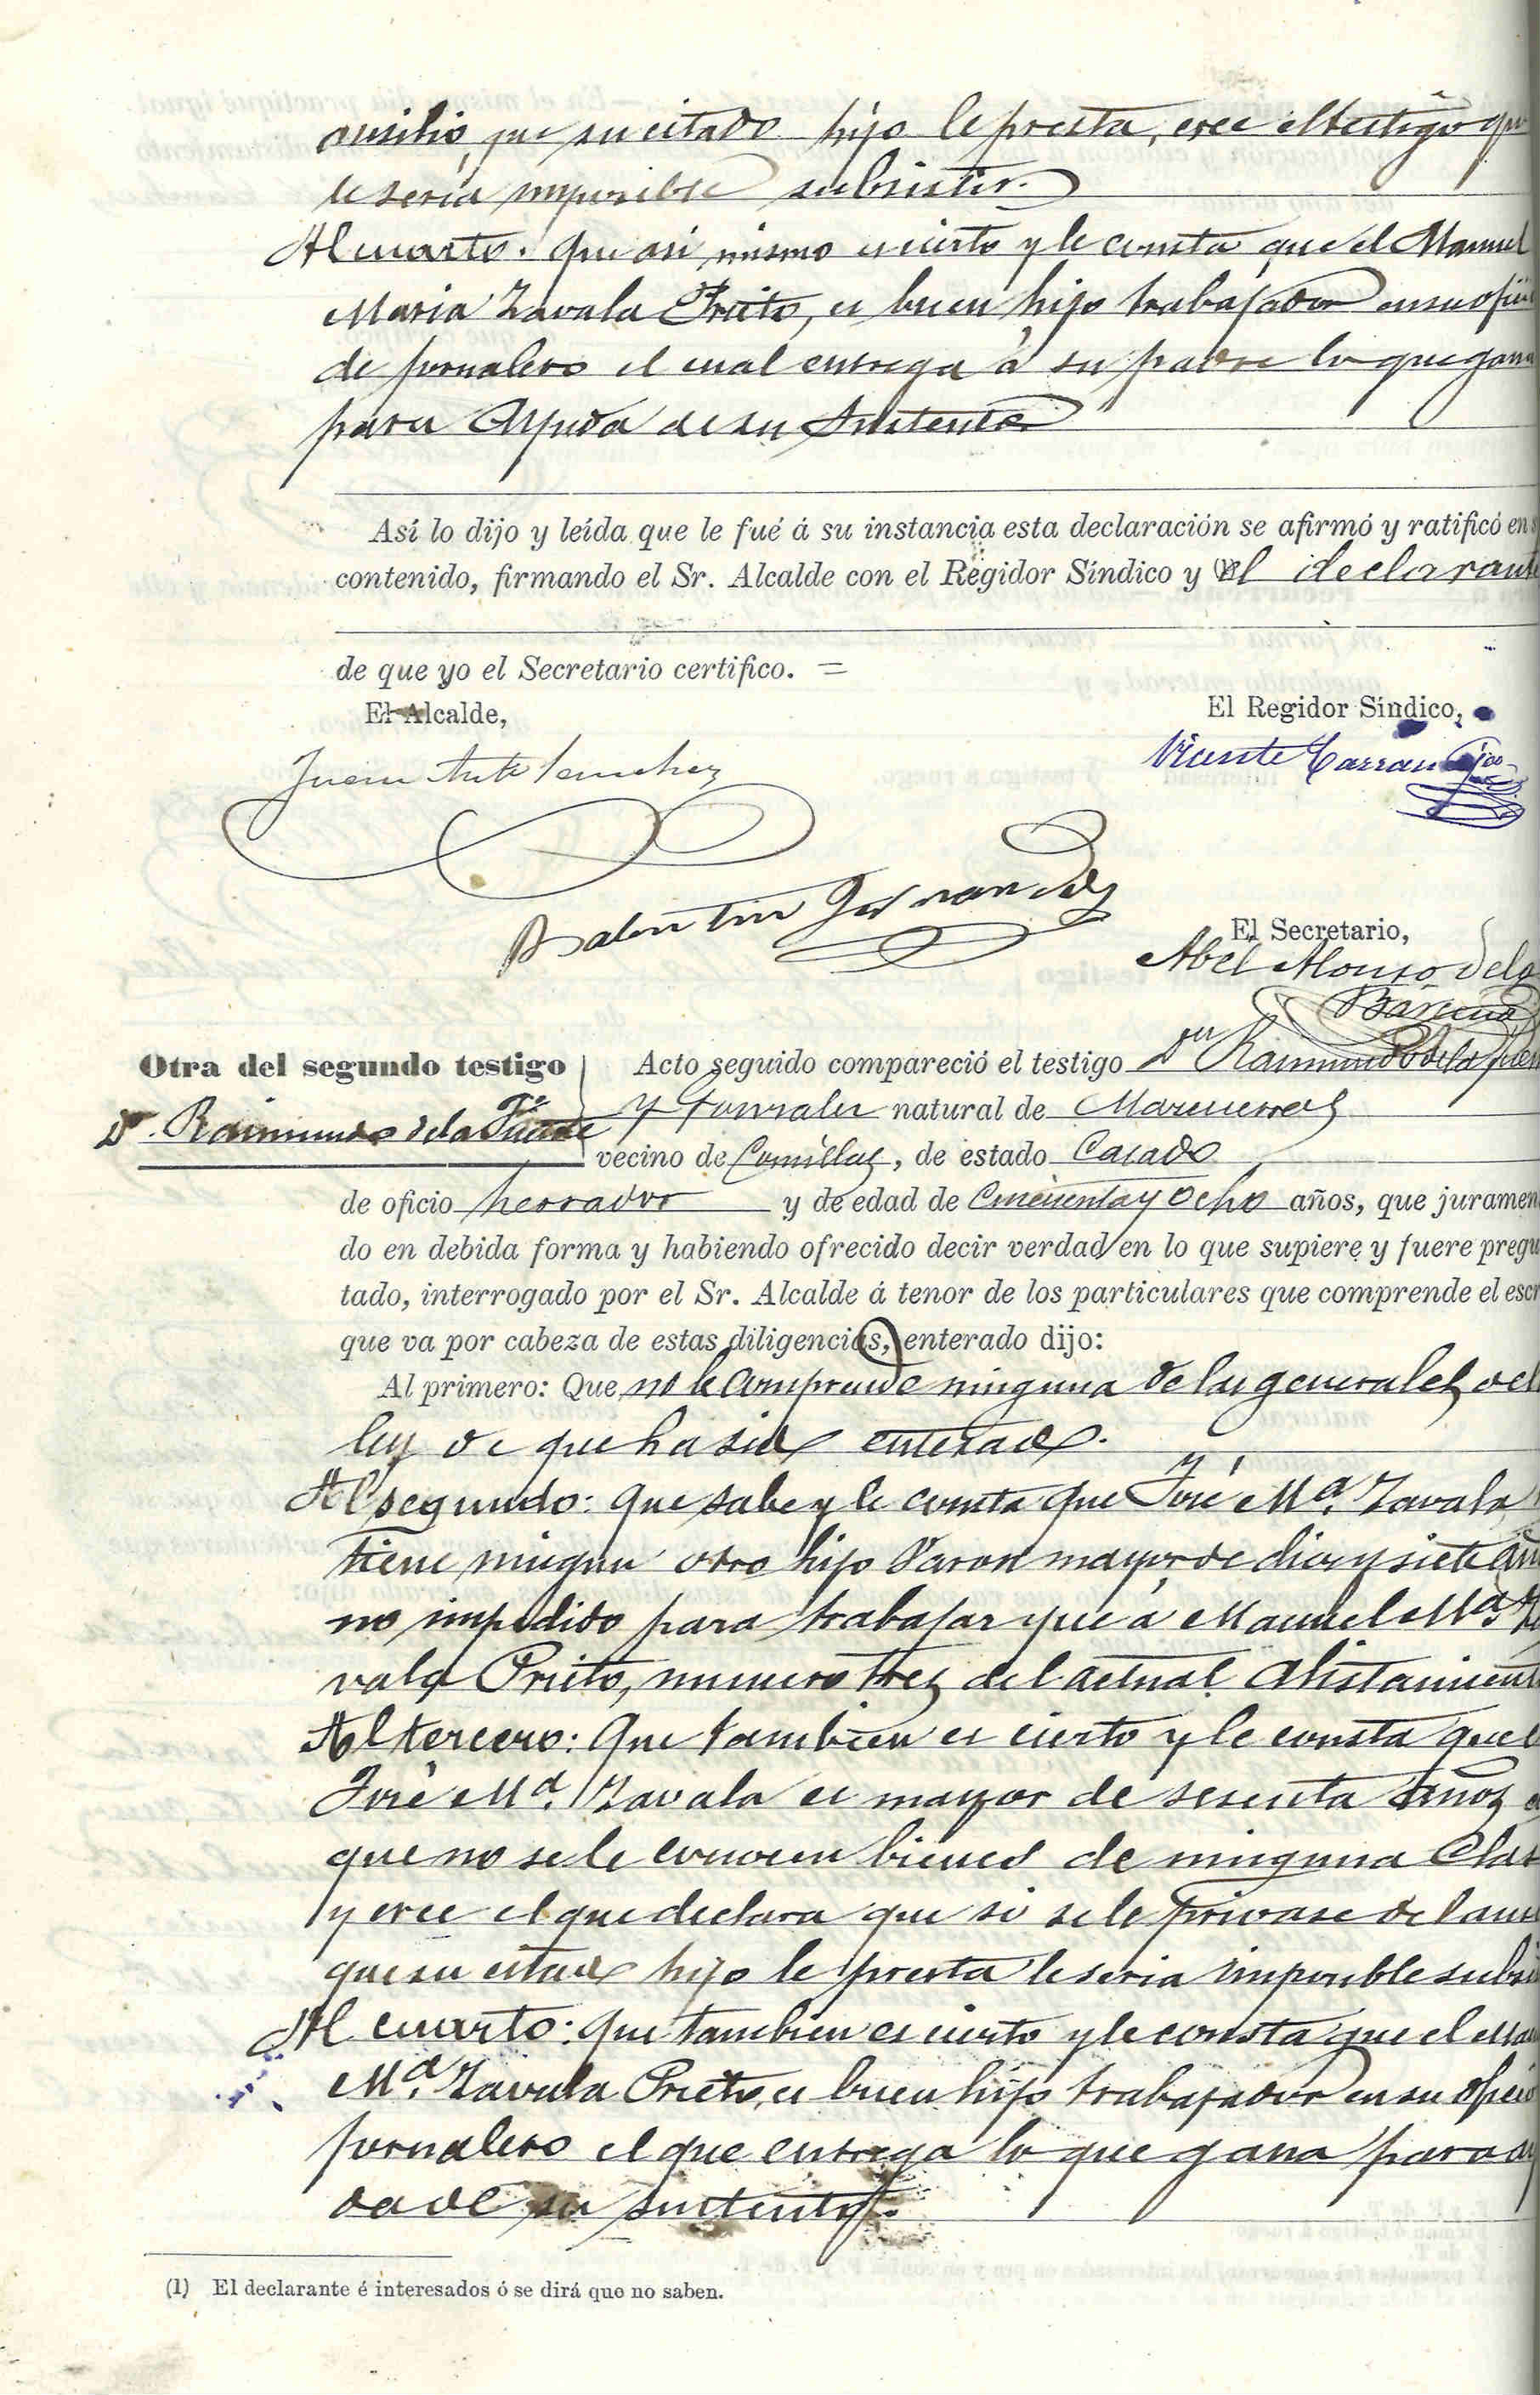 ausilio, que su citado hijo le presta, cree el testigo que
le seria imposible subsistir.
Al cuarto. Que asi mismo es cierto y le consta que el Manuel
Maria Zavala Prieto, es buen hijo trabajador en su ofici
de jornalero el cual entrega á su padre lo que gana
para Ayuda de su Sustento
Así lo dijo y leída que le fué á su instancia esta declaración se afirmó y ratificó en s
contenido, firmando el Sr. Alcalde con el Regidor Síndico y el declarante
de que yo el Secretario certifico. =
El Alcalde,
El Regidor Síndico,
Juan Anto Sanchez
Vicente
Balentin Fernandez
El Secretario,
Abel Alonso de la
Bárcena
Otra del segundo testigo
Dn. Raimundo de la Fuente
Acto seguido compareció el testigo Dn Raimundo de la Fuen
y Gonzalez natural de Mazcuerras
vecino de Comillas, de estado Casado
de oficio herrador y de edad de Cincuenta y Ocho años, que juramen
do en debida forma y habiendo ofrecido decir verdad en lo que supiere y fuere pregu
tado, interrogado por el Sr. Alcalde á tenor de los particulares que comprende el escr
que va por cabeza de estas diligencias, enterado dijo:
Al primero: Que no le comprende ninguna de las generales de l
ley de que ha sido enterado.
Al segundo: Que sabe y le consta que José Ma. Zavala
tiene ningun otro hijo Varon mayor de diez y siete añ
no impedido para trabajar que á Manuel Ma. Za
vala Prieto, numero tres del actual Alistamient
Al tercero: Que tambien es cierto y le consta que e
José Ma. Zavala es mayor de sesenta años
que no se le conocen bienes de ninguna Clas
y cree el que declara que si se le privase del aus
que su citado hijo le presta le seria imposible subsi
Al cuarto: Que tambien es cierto y le consta que el Man
Ma. Zavala Prieto, es buen hijo trabajador en su oficio
jornalero el que entrega lo que gana para ay
da de su sustento.
(1) El declarante é interesados ó se dirá que no saben.